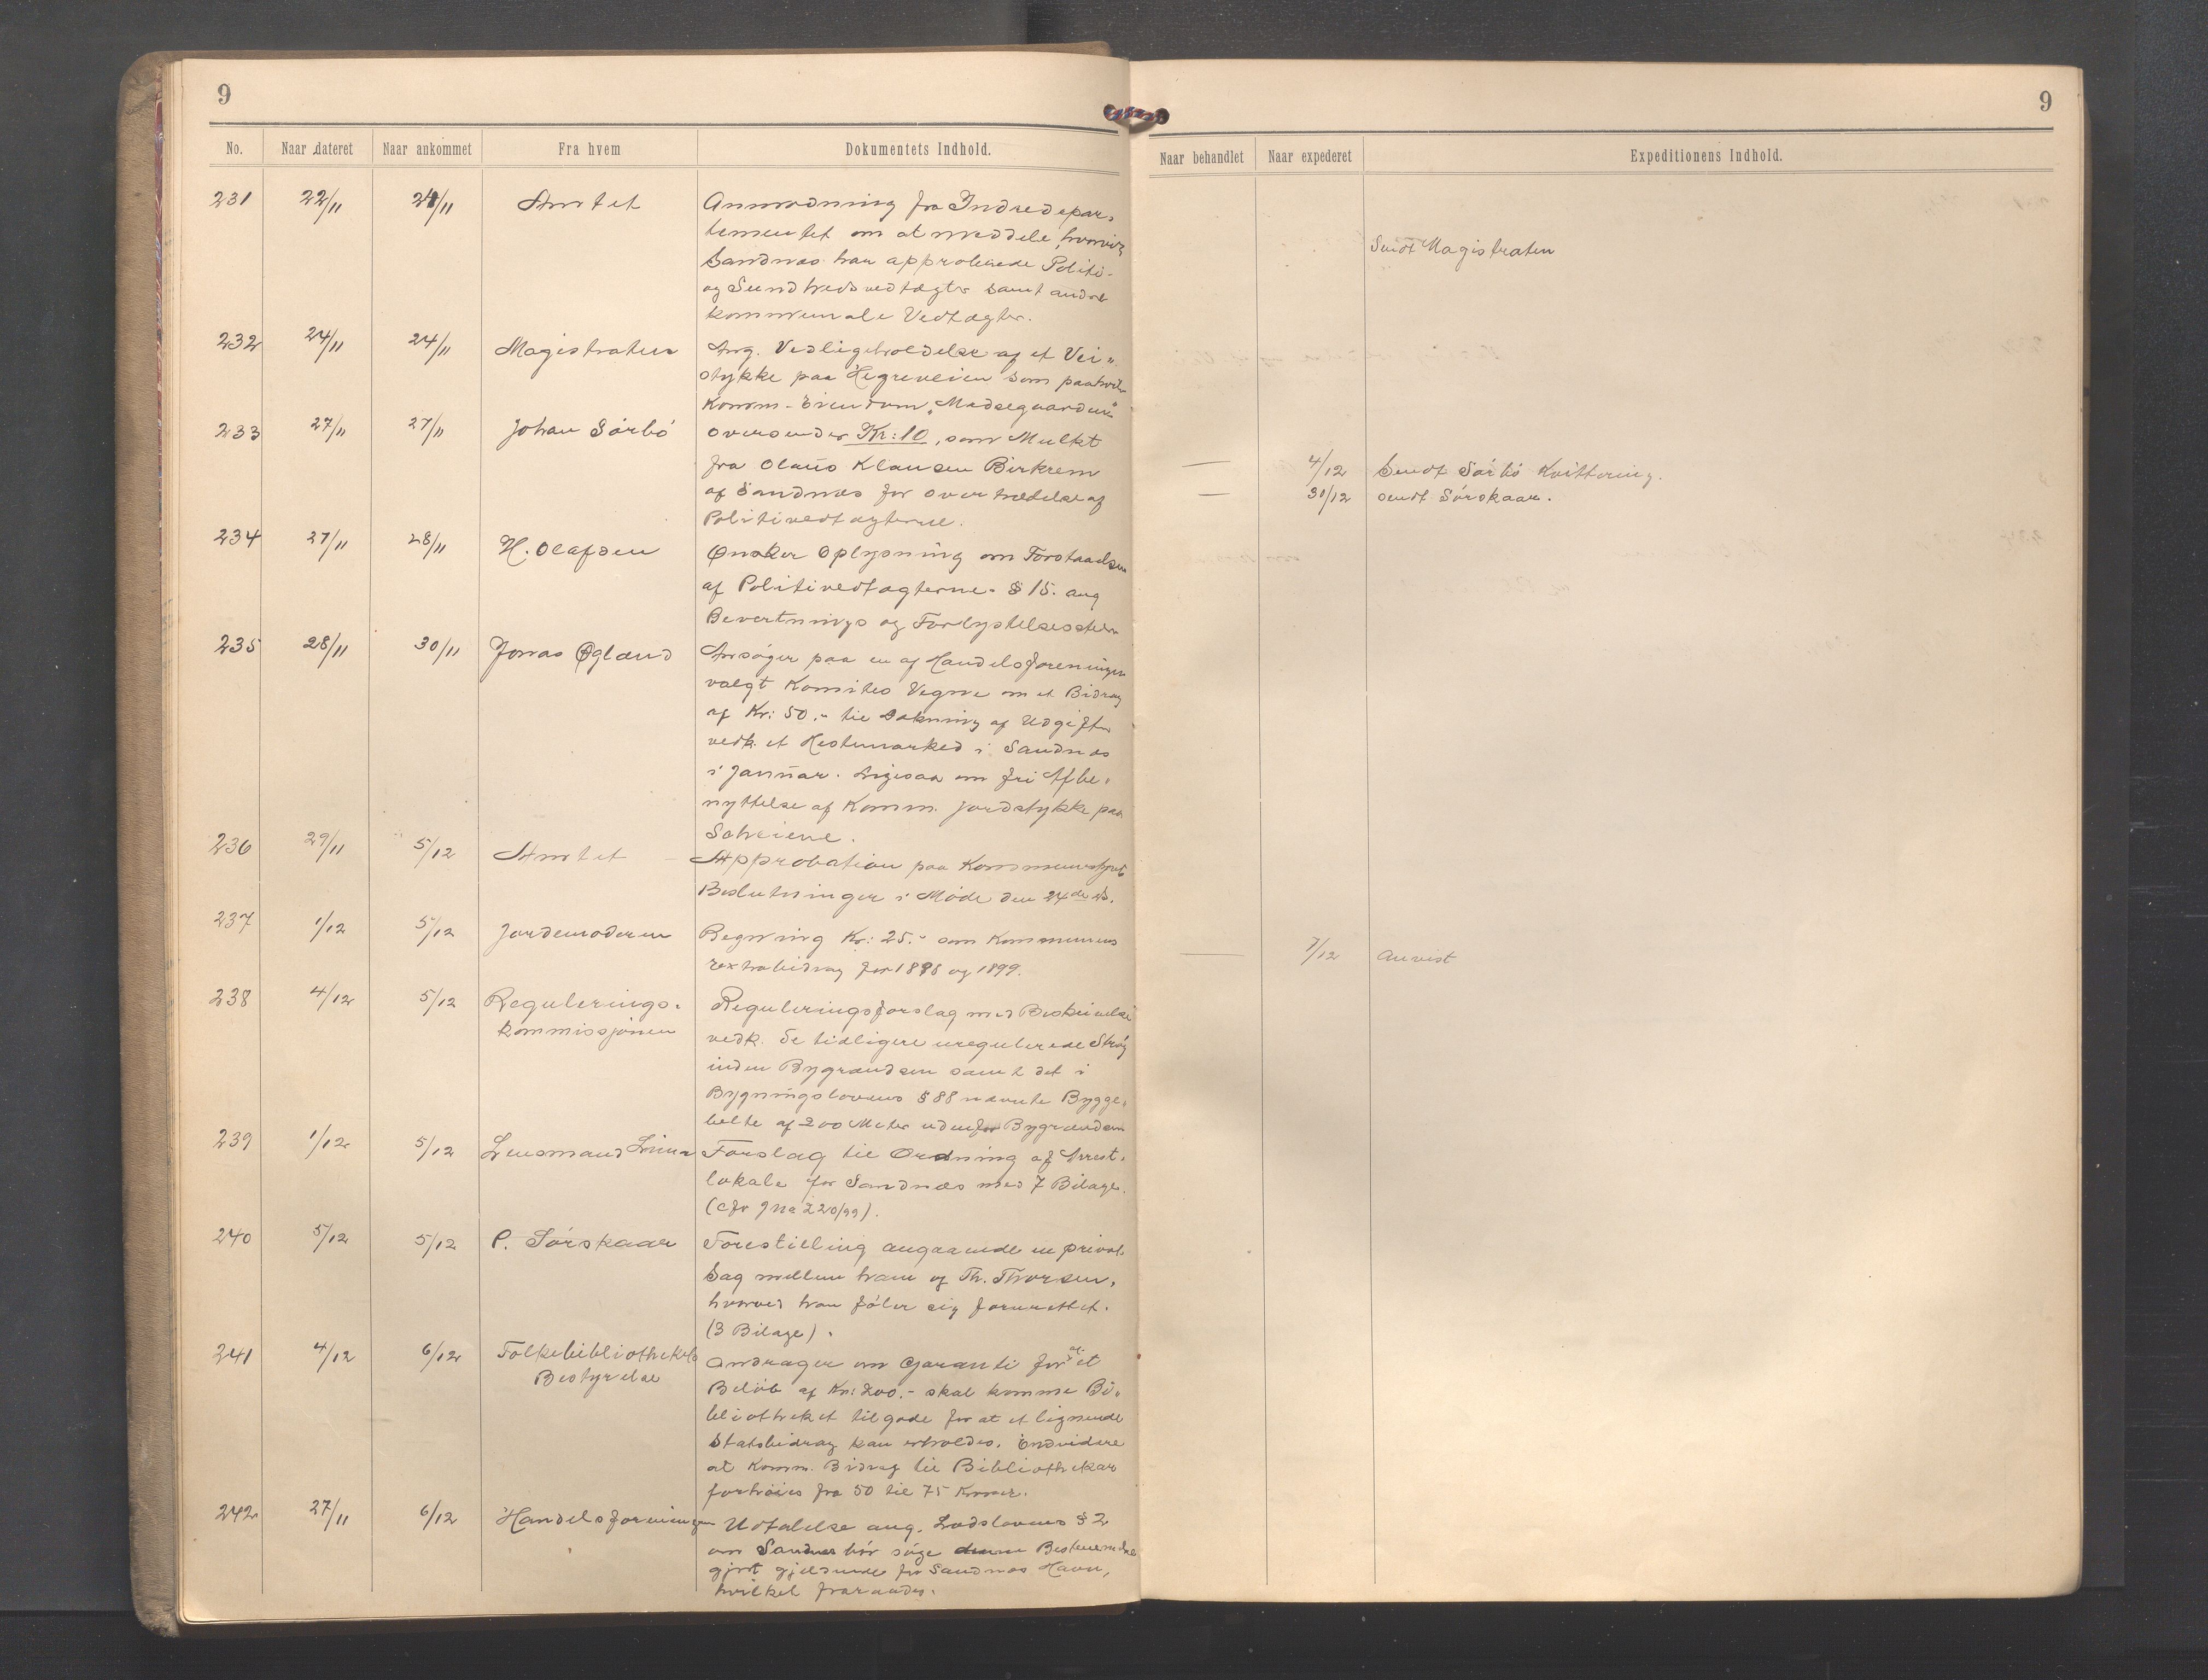 9
No. Naar dateret Naar ankommet Fra hvem Dokumentets Indhold.
231 22/11 24/11 Amtet Anmodning fra Indredepar-
tementet om at meddele, hvorvidt
Sandnæs har approberede Politi-
og Sundhedsvedtægter samt andre
kommunale Vedtægter.
232 24/11 24/11 Magistraten Ang. Vedligeholdelse af et Vei-
stykke paa Hegreveien som paahviler
Komm-Eiendom „Madsegaarden"
233 27/11 27/11 Johan Sørbö oversender Kr: 10, som Mulkt
fra Olaus Klausen Birkrem
af Sandnæs for overtrædelse af
Politivedtægterne.
234 27/11 28/11 H. Olafsen Ønsker Oplysning om Forstaaelsen
af Politivedtægterne § 15. ang
Bevertnings og Forlystelsessteder
235 28/11 30/11 Jonas Øglænd Ansøger paa en af Handelsforeningen
valgt Komites Vegne om et Bidrag
af Kr: 50.- til Dækning af Udgifter
vedk. et Hestemarked i Sandnæs
i Januar. Ligesaa om fri Afbe-
nyttelse af Komm. Jordstykke paa
236 29/11 5/12 Amtet Approbation paa Kommunestyrets
Beslutninger i Møde den 24de ds.
237 1/12 5/12 Jordemoderen Regning Kr: 25.- som Kommunens
extrabidrag for 1898 og 1899.
238 4/12 5/12 Regulerings- Reguleringsforslag med Beskrivelse
kommissjonen vedk. de tidligere uregulerede Strøg
inden Bygrændsen samt det i
Bygningslovens § 88 nævnte Bygge-
belte af 200 Meter udenfor Bygrændsen
239 1/12 5/12 Lensmand Forslag til Ordning af Arrest-
lokale for Sandnæs med 7 Bilage.
(cfr 220/99).
240 5/12 5/12 P. Sørskaar Forestilling angaaende en privat
Sag mellem ham og Th. Thorsen,
hvorved han føler sig forurettet.
(3 Bilage).
241 4/12 6/12 Folkebibliothekets Andrager om Garanti for at et
Bestyrelse Beløb af Kr: 200.- skal komme Bi-
bliotheket tilgode for at et lignende
Statsbidrag kan erholdes. Endvidere
at Komm. Bidrag til Bibliothekar
forhøies fra 50 til 75 Kroner.
242 27/11 6/12 Handelsforeningen Udtalelse ang. Lodslovens § 2
om Sandnæs bör søge denne Bestemmelse
gjort gjeldende for Sandnæs Havn,
hvilket fraraades.
9
Naar behandlet Naar expederet Expeditionens Indhold.
Sendt Magistraten
— 4/12 Sendt Sørbö Kvittering.
— 30/12 sendt Sørskaar.
— 7/12 Anvist